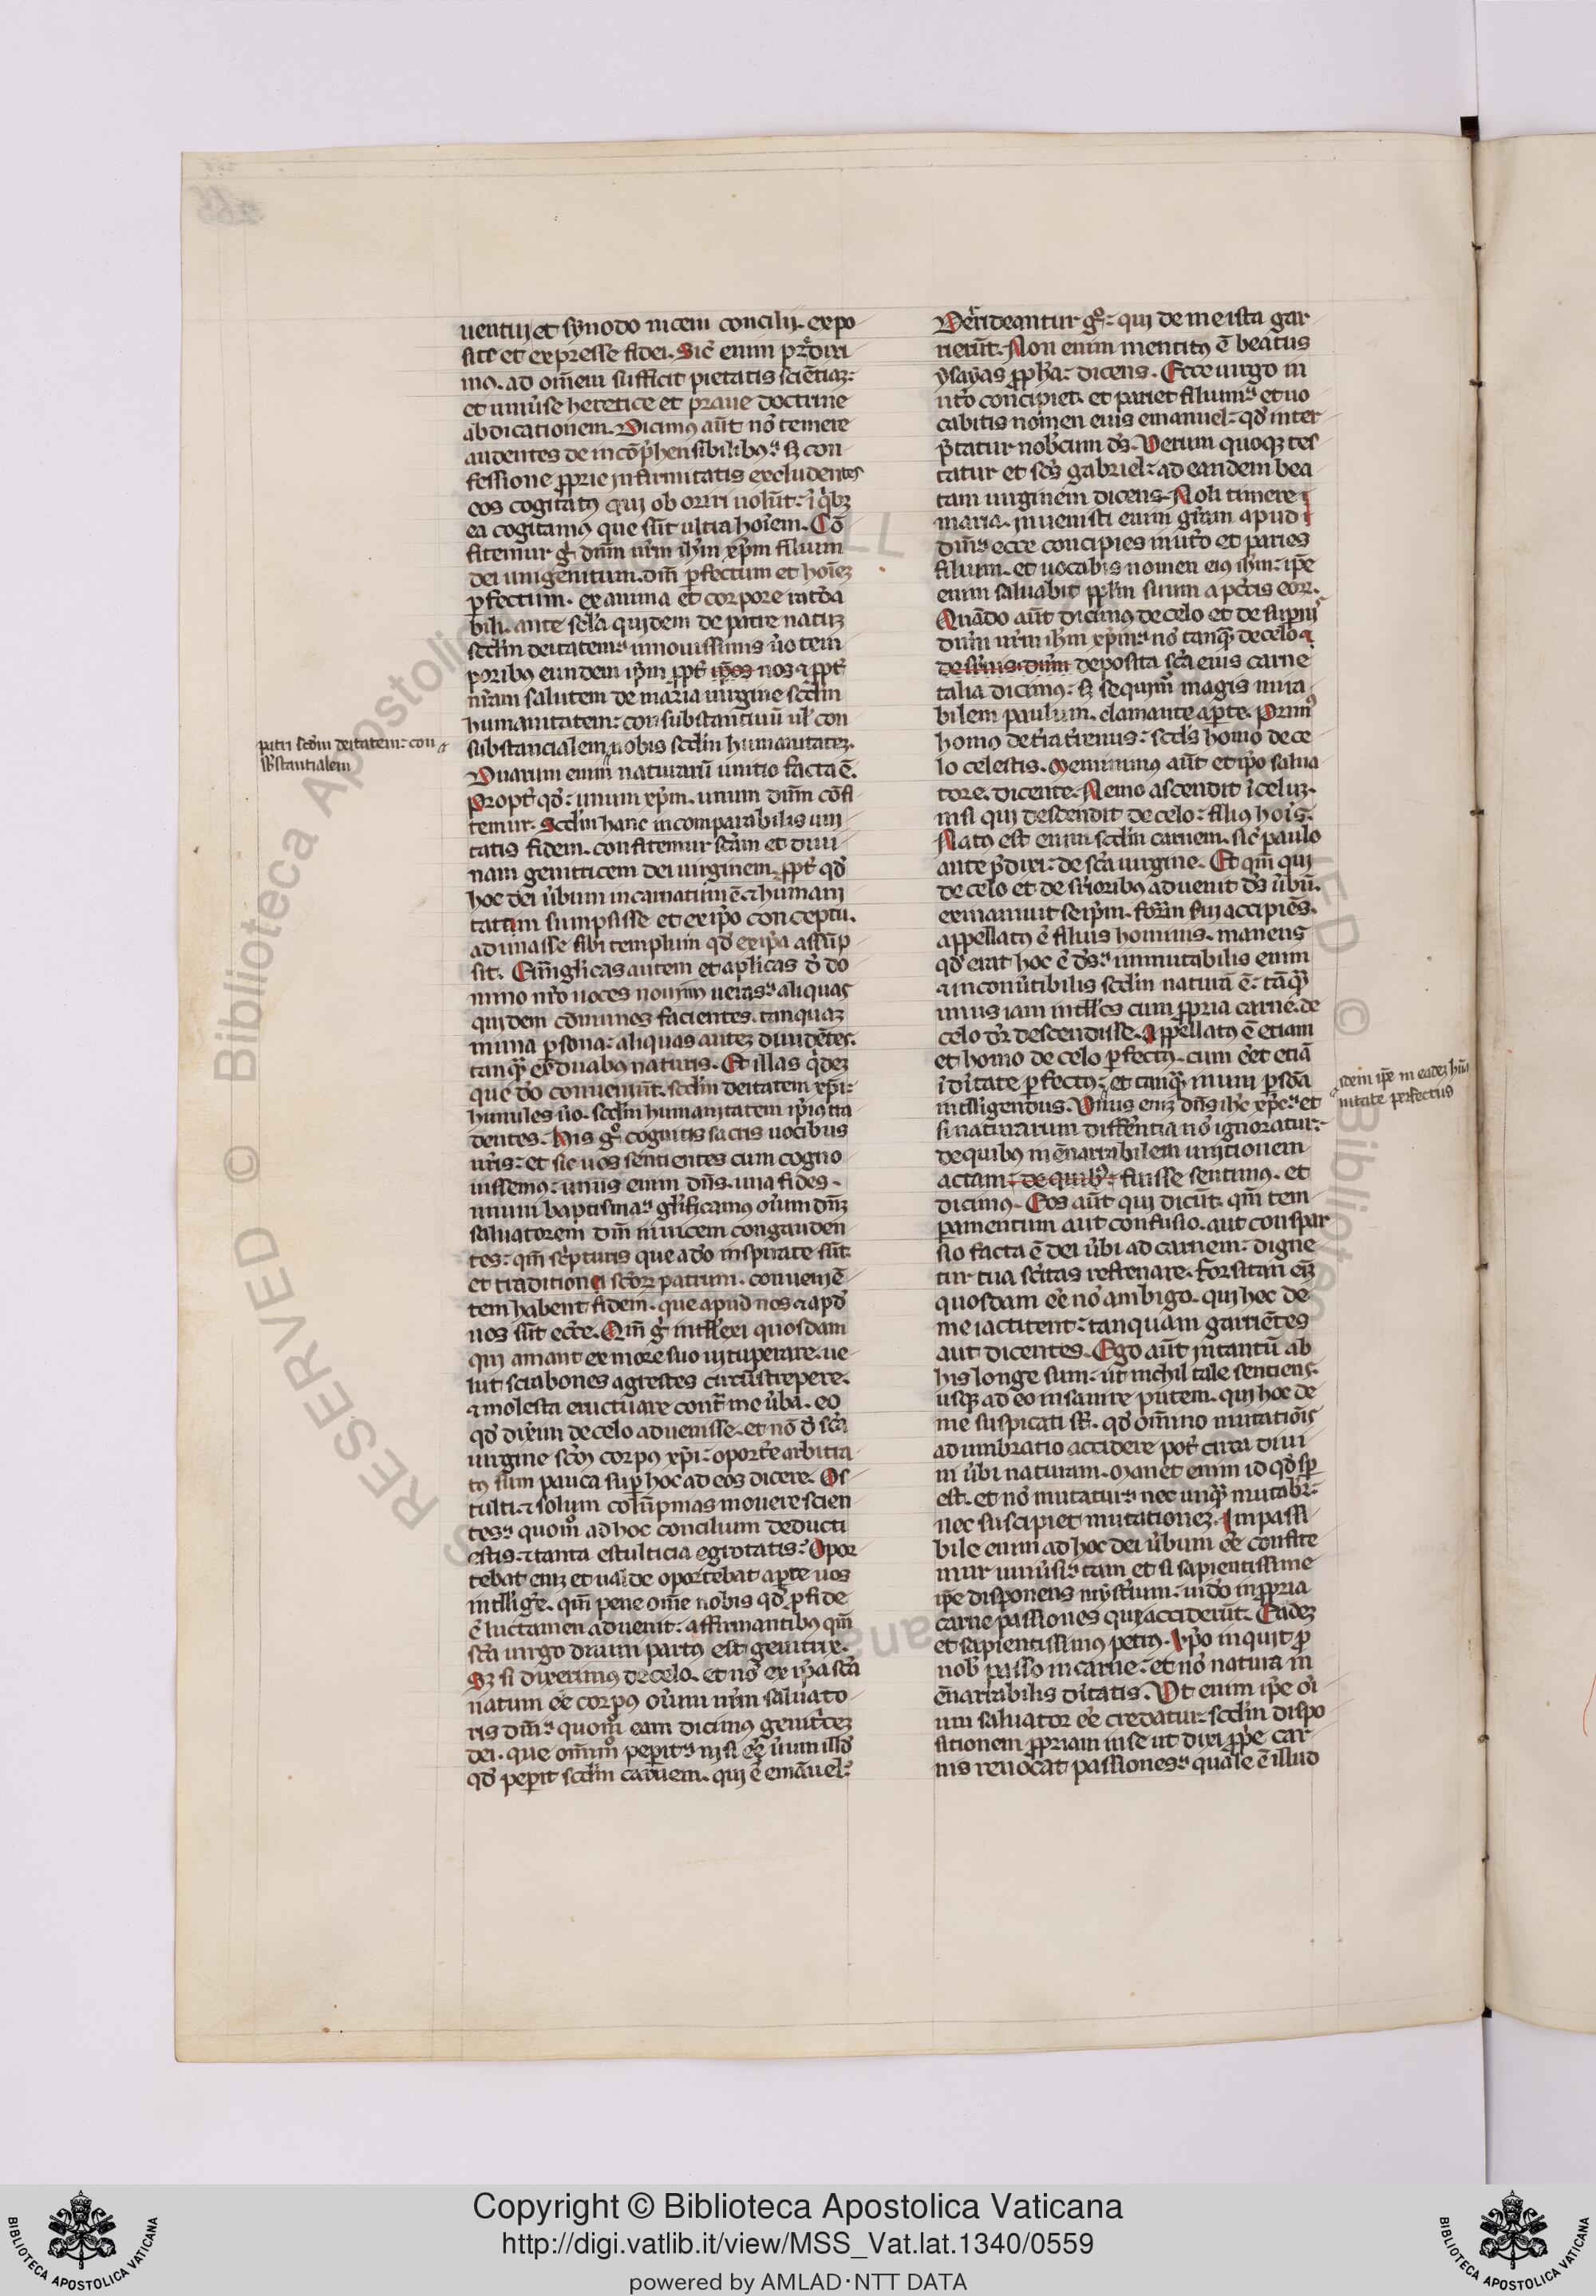 uentui et synodo niceni concilij. expo
site et expresse fidei. Sic̄ enim pr̄dixi
mꝰ. ad om̄em sufficit pietatis sciētiaꝫ:
et uniūse heretice et praue doctrine
abdicationem. Dicimꝰ aūt nō temere
audentes de incōp̄hensibilibꝰ: sꝫ con
fessione ꝓprie infirmitatis excludentes
eos cogitatꝰ qui oboriri uolūt: ī q̄bꝫ
ea cogitamꝰ que sūt ultra hoīem. Cō
fitemur ḡ dn̄m nr̄m ihm̄ xp̄m filium
dei unigenitum. dm̄ ꝑfectum et hoīeꝫ
ꝑfectum. ex anima et corpore rac̄ōa
bili. ante sc̄la quidem de patre natuꝫ
scd̄m deitatem: in nouissimis ūo tem
poribꝰ eundem ip̄m ꝓpt̄ ip̄os nos ⁊ ꝓpt̄
nr̄am salutem de maria uirgine scd̄m
humanitatem: consubstantiuū ul̄ con
patri scd̄m deitatem: con
sb̄stantialem
substancialem nobis scd̄m humanitateꝫ.
Duarum enim naturarū unitio facta ē.
Propt̄ qd̄: unum xp̄m. unum dn̄m cōfi
temur. Scd̄m hanc incomparabilis uni
tatis fidem. confitemur sc̄am et diui
nam genitricem dei uirginem. ꝓpt̄ qd̄
hoc dei ūbum incarnatum ē. ⁊ humani
tatum sumpsisse et ex ip̄o conceptu.
adunasse sibi templum qd̄ ex ip̄a assūp
sit. Euāgl̄icas autem et ap̄licas d̄ do
mino nr̄o uoces nouimꝰ ueras: aliquas
quidem cōmunes facientes. tanquaꝫ
in una ꝑsona: aliquas auteꝫ diuidētes.
tanqꝫ ex duabꝰ naturis. Et illas q̄deꝫ
que dō conueniūt. scd̄m deitatem xp̄i:
humiles ūo. scd̄m humanitatem ip̄iꝰ tra
dentes. His gͦ cognitis sacris uocibus
ur̄is: et sic uos sentientes cum cogno
uissemꝰ: unus enim dn̄s. una fides.
unum baptisma: gl̄ificamꝰ oīum dn̄ꝫ
saluatorem dm̄ inuicem congauden
tes: qm̄ sc̄pturis que a dō inspirate sūt
et traditioni sc̄oꝝ patrum. conueniē
tem habent fidem. que apud nos ⁊ apd̄
uos sūt ecc̄e. Qm̄ ḡ intll̄exi quosdam
qui amant ex more suo uituperare. ue
lut scrabones agrestes circūstrepere.
⁊ molesta eructuare cont̄ me ūba. eo
qd̄ dixim de celo aduenisse. et nō d̄ sc̄a
uirgine sc̄m corpꝰ xp̄i: oport̄e arbitra
tꝰ sum pauca sup̄ hoc ad eos dicere. O s
tulti. ⁊ solum colūpmas mouere scien
tes: quomͦ ad hoc concilium deducti
estis. ⁊ tanta estulticia egrotatis: Opor
tebat eniꝫ et ualde oportebat aꝑte uos
intll̄iḡe. qm̄ pene om̄e nobis qd̄ ꝓ fide
ē luctamen aduenit: affirmantibꝰ qm̄
sc̄a uirgo diuini partꝰ est genitrix.
Sꝫ si dixerimus de celo. et nō ex ip̄a sc̄a
natum eē corpꝰ oīum nr̄m saluato
ris dm̄: quomͦ eam dicimꝰ genit̄ceꝫ
dei. que om̄imͦ peꝑit: nisi eē ūum ill̄d
qd̄ peꝑit scd̄m carnem. qui ē emānuel:
Der̄ideantur gͦ: qui de me ista gar
rierūt. Non enim mentitꝰ ē beatus
ysayas ꝓph̄a: dicens. Ecce uirgo in
ut̄o concipiet. et pariet filium: et uo
cabitis nomen eius emanuel: qd̄ inter
p̄tatur nob̄cum ds̄. Verum quoqꝫ tes
tatur et sc̄s gabriel: ad eandem bea
tam uirginem dicens. Noli timere
maria. inuenisti enim gr̄am apud
dm̄: ecce concipies in ut̄o et paries
filium. et uocabis nomen eiꝰ ihm̄: ip̄e
enim saluabit ppl̄m suum a pc̄cis eoꝝ.
Quādo aūt dicimꝰ de celo et de suꝑnis
dn̄m nr̄m ihm̄ xp̄m: nō tanqꝫ de celo ⁊
de sup̄nis. dn̄m deposita sc̄a eius carne
talia dicimꝰ: sꝫ sequim̄ magis mira
bilem paulum. clamante aꝑte. Primꝰ
homo de t̄ra t̄renus: scd̄s homo de ce
lo celestis. Meminimꝰ aūt et ip̄o salua
tore. dicente. Nemo ascendit ī celuꝫ.
nisi qui descendit de celo: filiꝰ hoīs.
Natꝰ est enim scd̄m carnem. sic̄ paulo
ante p̄dixi: de sc̄a uirgine. Et qm̄ qui
de celo et de sup̄ioribꝰ aduenit ds̄ ūbū.
exinaniuit seip̄m. form̄ ſui accipiēs.
appellatꝰ ē filius hominis. manens
qd̄ erat hoc ē ds̄: inmutabilis enim
⁊ incōnūtibilis scd̄m naturā ē: tāqꝫ
unus iam intll̄cs cum ꝓpria carne. de
celo dr̄ descendisse. Appellatꝰ ē etiam
et homo de celo ꝑfectꝰ. cum eēt etiā
ī dītate ꝑfectꝰ: et tanqꝫ in uni ꝑsōa
idem ip̄e in eadeꝫ hūa
nitate perfectus
intlligendus. Unus eniꝫ dn̄s ih̄c xp̄c: et
si naturarum diffēntia nō ignoratur:
de quibꝰ inēnarrabilem unitionem
actam: de quibꝰ: fuisse sentimꝰ. et
dicimꝰ. Eos aūt qui dicūt. qm̄ tem
pamentum aut confusio. aut conspar
sio facta ē dei ūbi ad carnem: digne
tur tua sc̄itas refrenare. Forsitan eīꝫ
quosdam eē nō ambigo. qui hoc de
me iactitent: tanquam garriētes
aut dicentes. Ego aūt intantū ab
his longe sum: ut nichil tale sentiens.
usqꝫ ad eo insanire putem. qui hoc de
me suspicati st̄. qd̄ om̄ino mutatiōis
adumbratio accidere pot̄ circa diui
ni ūbi naturam. Manet enim id qd̄ sꝑ
est. et nō mutatur: nec unqꝫ mutabr̄:
nec suscipiet mutationeꝫ. Impassi
bile enim ad hoc dei ūbum eē confite
mur uniūsi: tam et si sapientissime
ip̄e disponens myst̄ium: uidō in ꝓpria
carne passiones qui acciderūt. Eadeꝫ
et sapientissimꝰ petrꝰ. Xp̄o inquit ꝓ
nob̄ passo in carne: et nō natura in
ēnarrabilis dītatis. Vt enim ip̄e oī
um saluator eē credatur: scd̄m dispo
sitionem ꝓpriam in se ut dixi ꝓpe car
nis reuocat passiones: quale ē illud